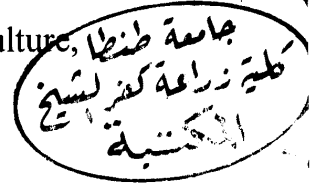 ulture,
جامعة طنطا
كلية زراعة كفر الشيخ
المكتبة